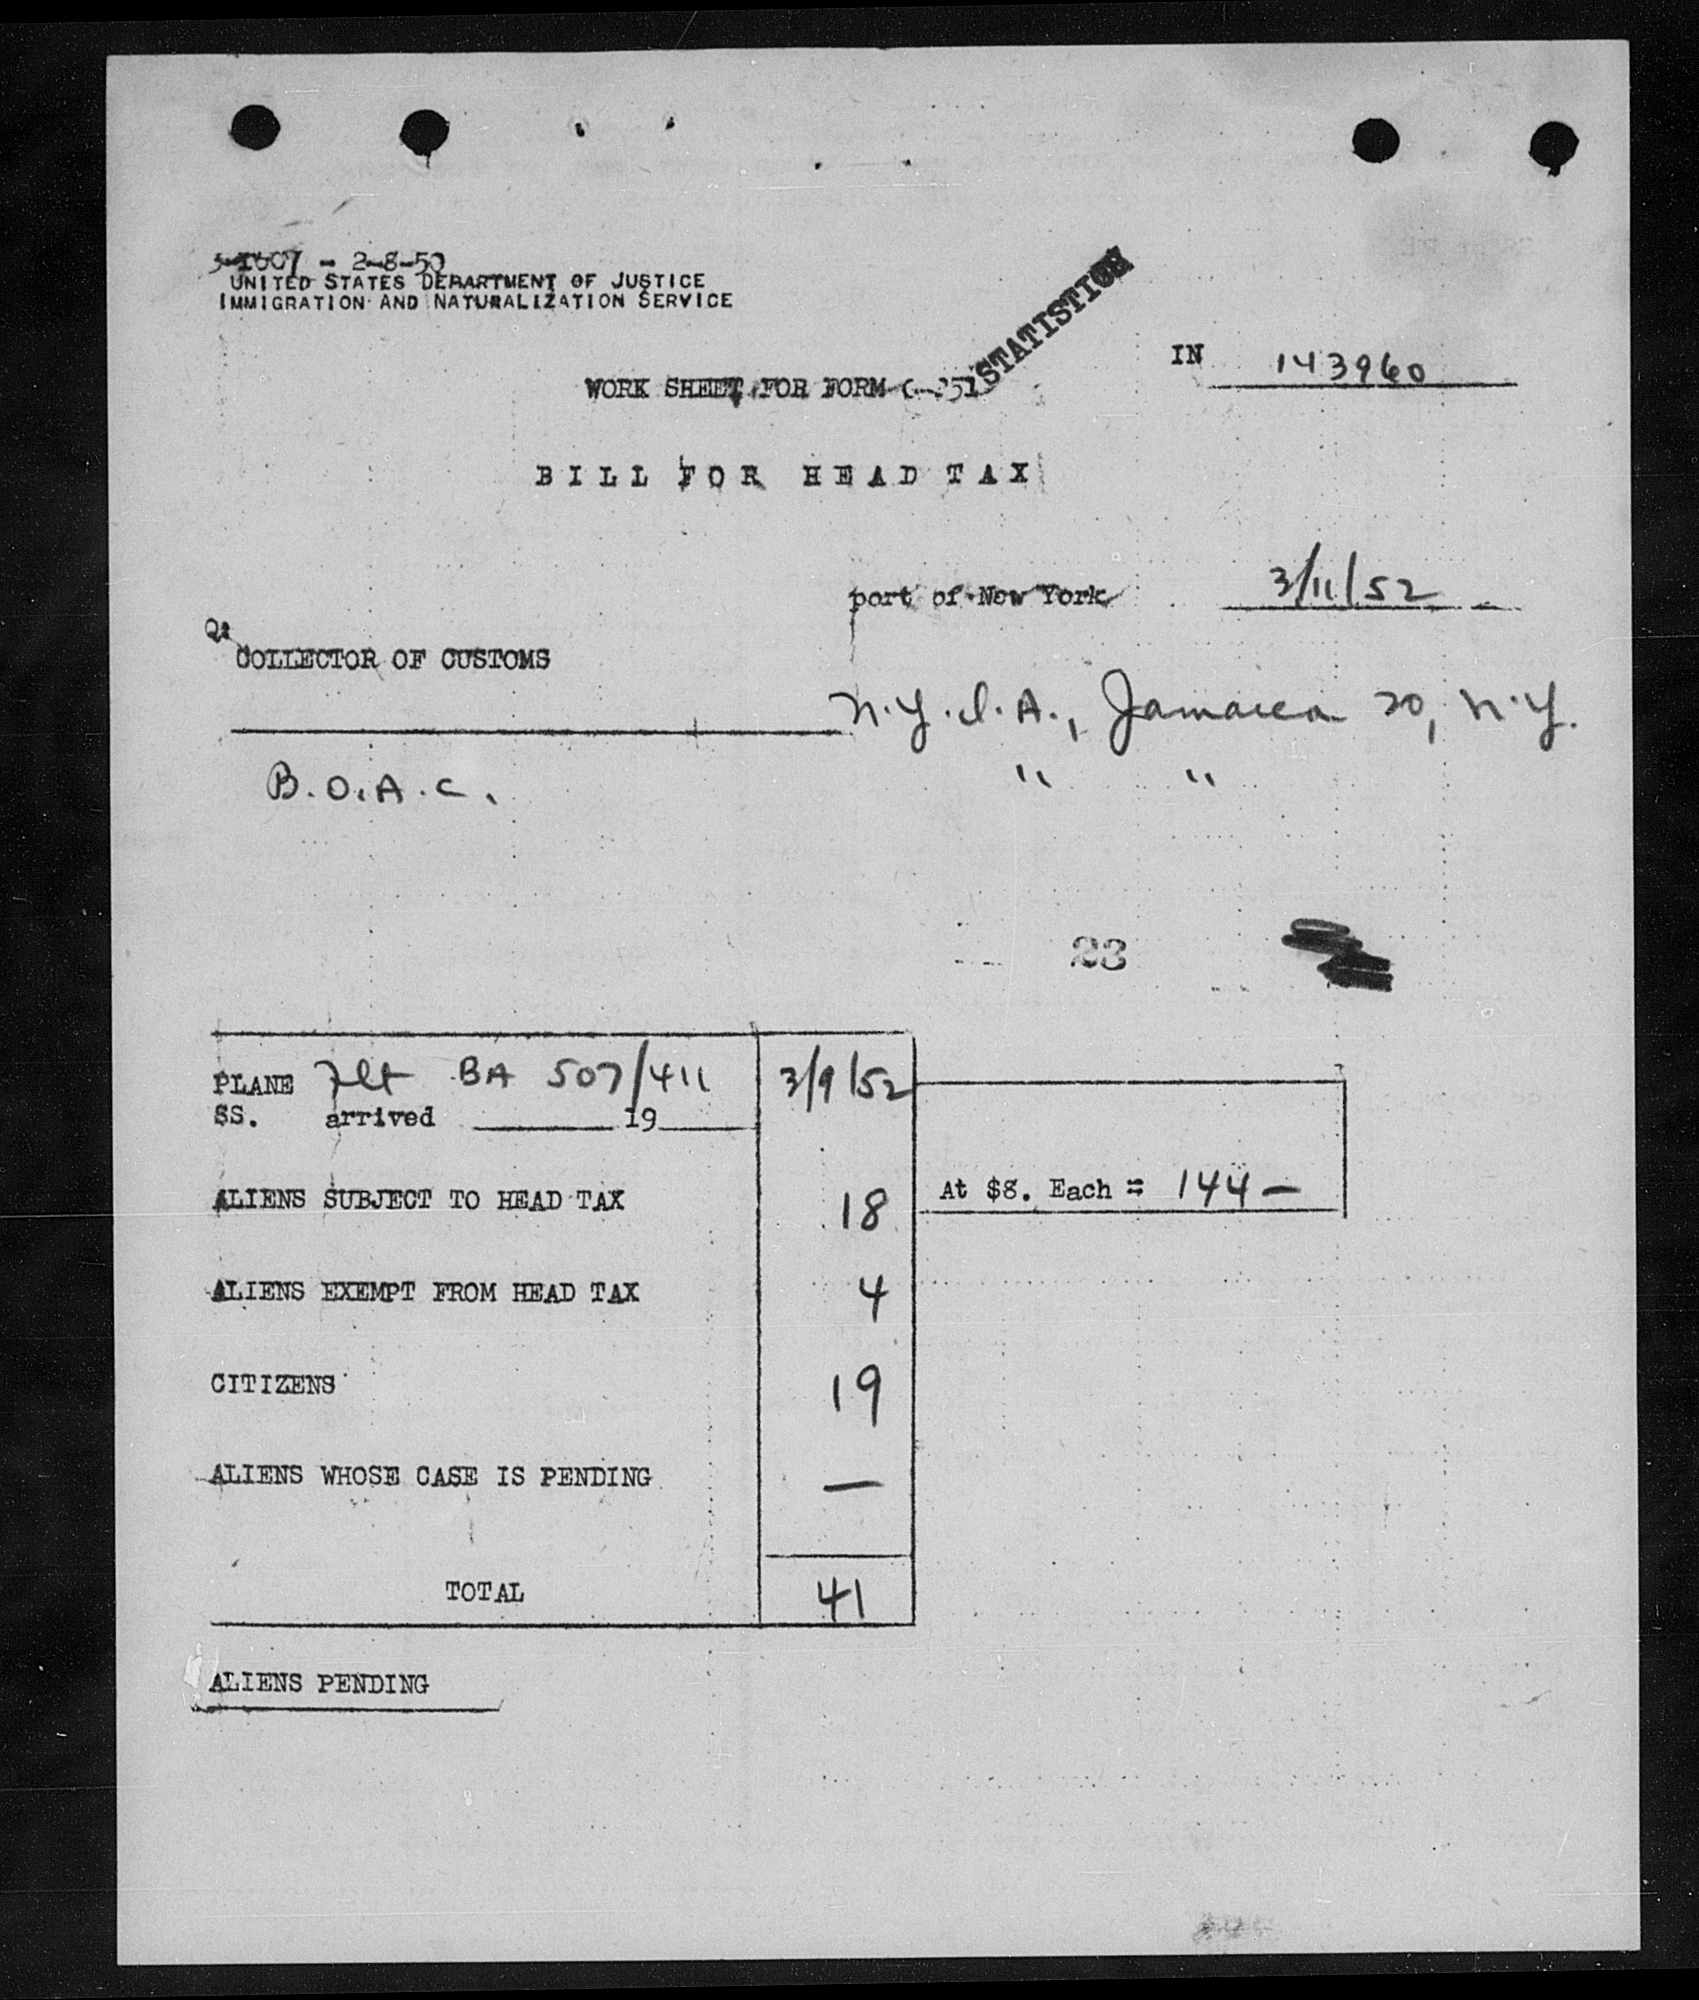 3-1607 - 2-8-50
UNITED STATES DEPARTMENT OF JUSTICE
IMMIGRATION AND NATURALIZATION SERVICE
STATISTICS
IN 143960
WORK SHEET FOR FORM
BILL FOR HEAD TAX
port of New York 3/11/52
COLLECTOR OF CUSTOMS
N.Y.I.A., Jamaica 20, N.Y.
B.O.A.C. " "
23
PLANE Flt BA 507/411 3/9/52
SS. arrived 19
ALIENS SUBJECT TO HEAD TAX 18 At $8. Each = 144 —
ALIENS EXEMPT FROM HEAD TAX 4
CITIZENS 19
ALIENS WHOSE CASE IS PENDING —
TOTAL 41
ALIENS PENDING